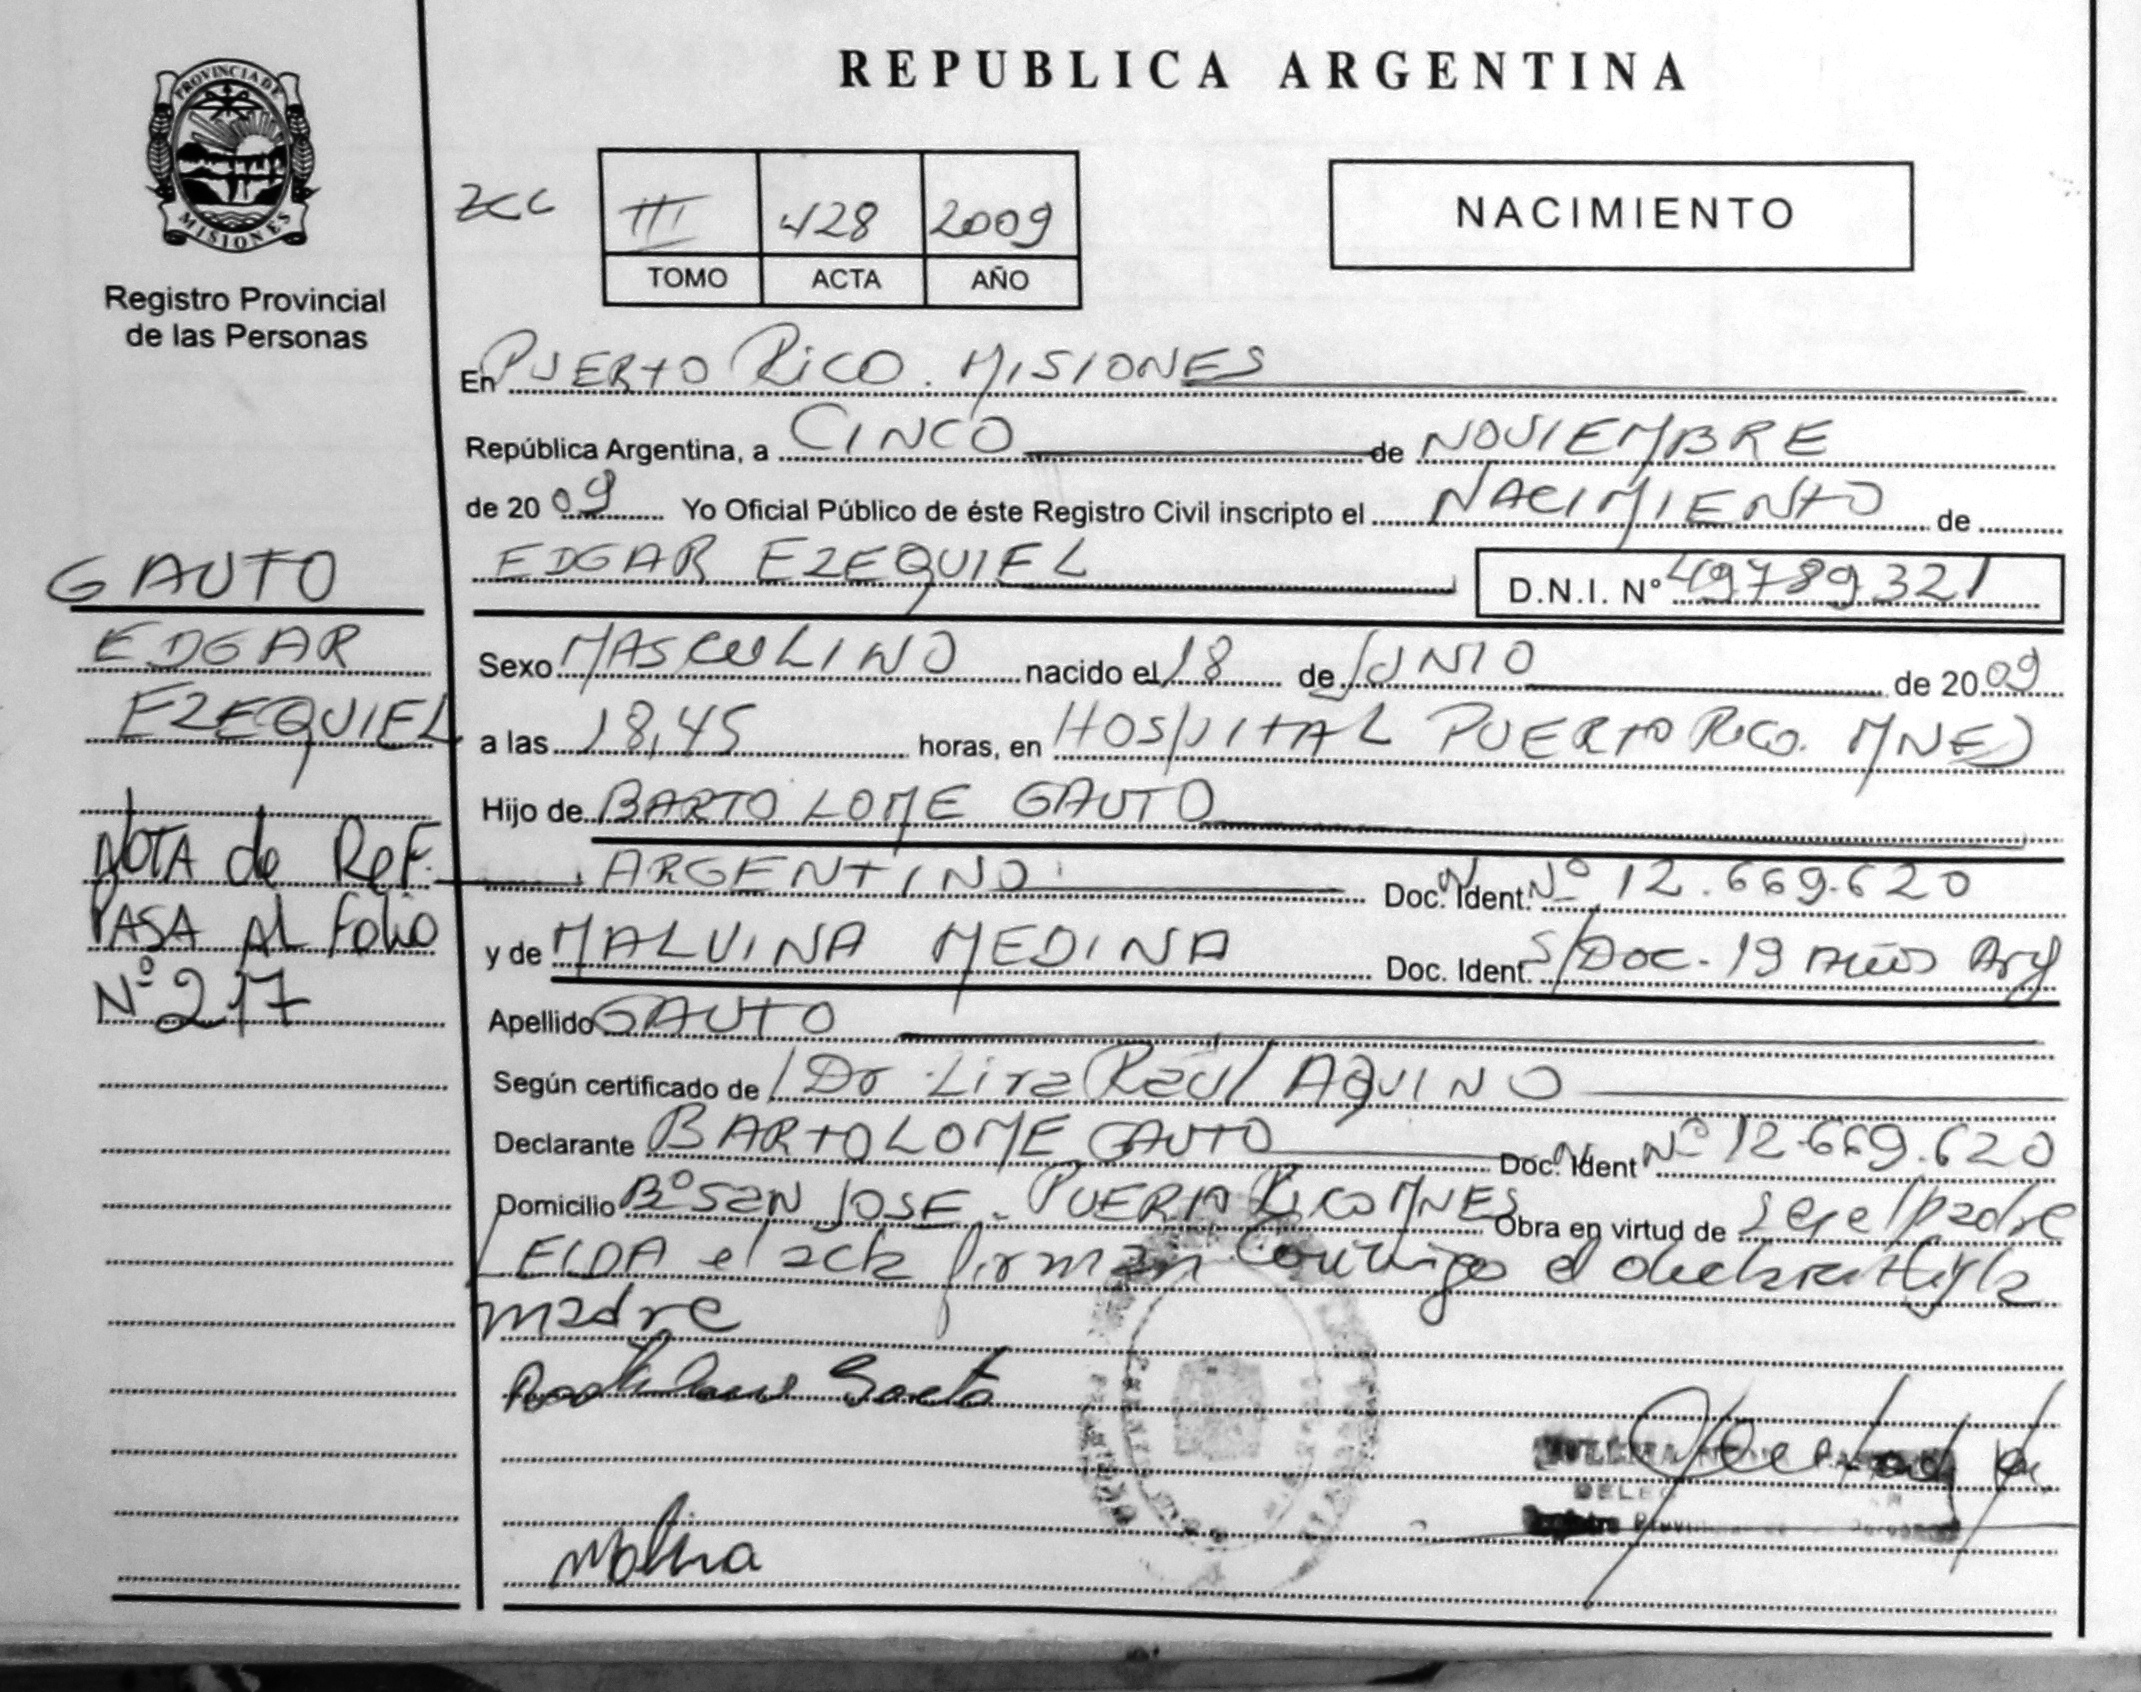 PROVINCIA DE
MISIONES
Registro Provincial
de las Personas
GAUTO
EDGAR
EZEQUIEL
NOTA de ReF.
PASA AL Folio
Nº 217
REPUBLICA ARGENTINA
III 428 2009
TOMO ACTA AÑO
NACIMIENTO
En PUERTO RICO. MISIONES
República Argentina, a CINCO de NOVIEMBRE
de 2009 Yo Oficial Público de éste Registro Civil inscripto el NACIMIENTO de
EDGAR EZEQUIEL D.N.I. Nº 49789321
Sexo MASCULINO nacido el 18 de JUNIO de 2009
a las 18,45 horas, en HOSPITAL PUERTO RICO. MNES
Hijo de BARTOLOME GAUTO
ARGENTINO Doc. Ident. Nº 12.669.620
y de MALVINA MEDINA Doc. Ident. S/Doc. 19 AÑOS Arg
Apellido GAUTO
Según certificado de Dr. Lira Raúl AQUINO
Declarante BARTOLOME GAUTO Doc. Ident Nº 12.669.620
Domicilio Bº San JOSE. PUERTO RICO MNES Obra en virtud de ser el padre
LEIDA el acta firman conmigo el declarante y la
madre
Gauto
DELEG
Registro Provin